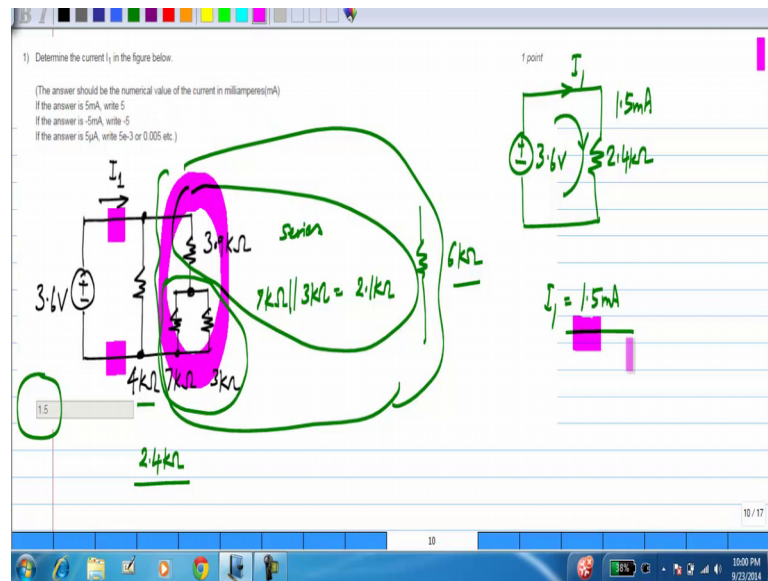 B I
1) Determine the current I1 in the figure below.
1 point
(The answer should be the numerical value of the current in milliamperes(mA)
If the answer is 5mA, write 5
If the answer is -5mA, write -5
If the answer is 5µA, write 5e-3 or 0.005 etc.)
I1
1.5mA
3.6V
2.4kΩ
I1
3.9kΩ
series
6kΩ
7kΩ || 3kΩ = 2.1kΩ
3.6V
I1 = 1.5mA
4kΩ 7kΩ 3kΩ
1.5
2.4kΩ
10 / 17
10
38%
10:00 PM
9/23/2014